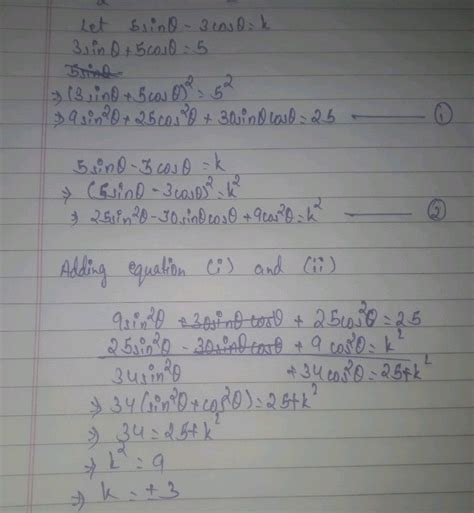 Let 5sinθ - 3cosθ = k
3sinθ + 5cosθ = 5
5sinθ
⇒ (3sinθ + 5cosθ)² = 5²
⇒ 9sin²θ + 25cos²θ + 30sinθcosθ = 25 ——— ①
5sinθ - 3cosθ = k
⇒ (5sinθ - 3cosθ)² = k²
⇒ 25sin²θ - 30sinθcosθ + 9cos²θ = k² ——— ②
Adding equation (i) and (ii)
9sin²θ + 30sinθcosθ + 25cos²θ = 25
25sin²θ - 30sinθcosθ + 9cos²θ = k²
34sin²θ + 34cos²θ = 25+k²
⇒ 34(sin²θ + cos²θ) = 25+k²
⇒ 34 = 25+k²
⇒ k² = 9
⇒ k = ±3